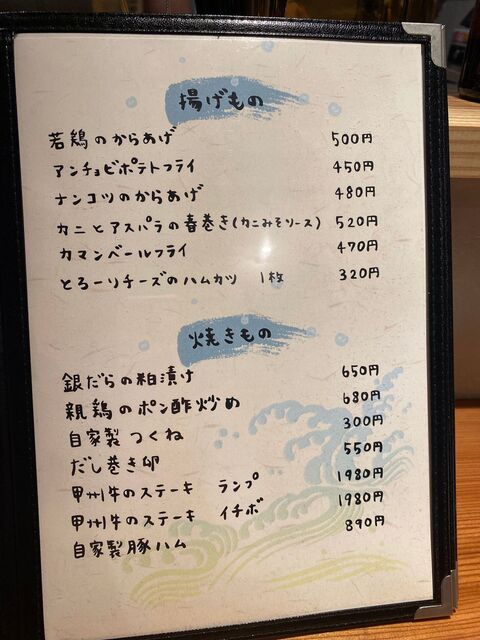 揚げもの
若鶏のからあげ 500円
アンチョビポテトフライ 450円
ナンコツのからあげ 480円
カニとアスパラの春巻き(カニみそソース) 520円
カマンベールフライ 470円
とろーりチーズのハムカツ 1枚 320円
焼きもの
銀だらの粕漬け 650円
親鶏のポン酢炒め 680円
自家製つくね 300円
だし巻き卵 550円
甲州牛のステーキ ランプ 1980円
甲州牛のステーキ イチボ 1980円
自家製豚ハム 890円